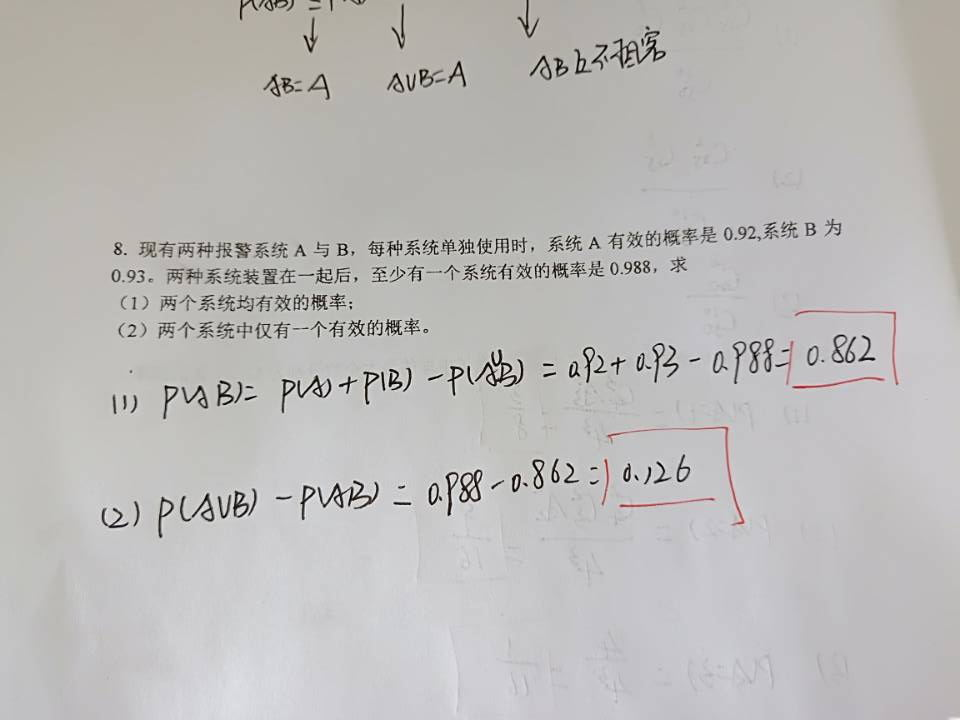 P(AB) = P
AB=A AUB=A AB互不相容
8. 现有两种报警系统 A 与 B，每种系统单独使用时，系统 A 有效的概率是 0.92,系统 B 为
0.93。两种系统装置在一起后，至少有一个系统有效的概率是 0.988，求
（1）两个系统均有效的概率；
（2）两个系统中仅有一个有效的概率。
(1) P(AB)= P(A)+P(B)-P(AUB) = 0.92+0.93-0.988= 0.862
(2) P(AUB)-P(AB) = 0.988-0.862= 0.126